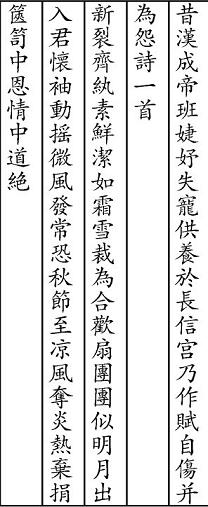 昔漢成帝班婕妤失寵供養於長信宮乃作賦自傷并
為怨詩一首
新裂齊紈素鮮潔如霜雪裁為合歡扇團團似明月出
入君懷袖動搖微風發常恐秋節至凉風奪炎熱棄捐
篋笥中恩情中道絶